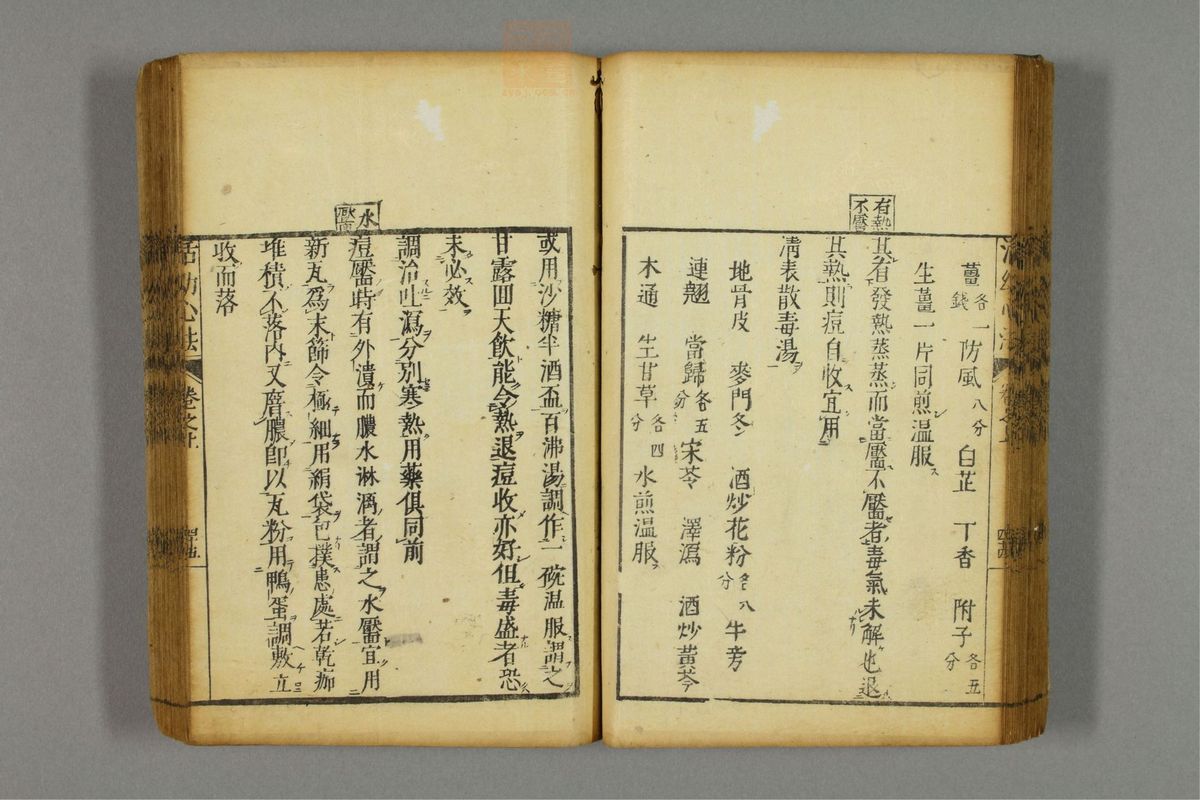 薑各一錢 防風八分 白芷 丁香 附子各五分
生薑一片同煎温服
有熱不靨
其有發熱蒸蒸而當靨不靨者毒氣未解也退
其熱則痘自收宜用
清表散毒湯
地骨皮 麥門冬 酒炒花粉各八分 牛旁
連翹 當歸各五分 宋苓 澤瀉 酒炒黃芩
木通 生甘草各四分 水煎温服
或用沙糖半酒盃百沸湯調作一碗温服謂之
甘露囬天飲能令熱退痘收亦好但毒盛者恐
未必效
調治吐瀉分別寒熱用藥俱同前
水靨
痘靨時有外潰而膿水淋漓者謂之水靨宜用
新瓦為末篩令極細用絹袋包撲患處若乾痂
堆積不落内又膿即以瓦粉用鴨蛋調敷立
收而落
活幼心法
卷之